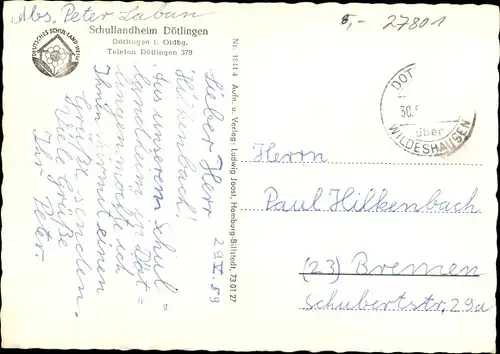 Abs. Peter Laban
5,- 27801
Schullandheim Dötlingen
Dötlingen i. Oldbg.
Telefon Dötlingen 379
DEUTSCHES SCHUL-LAND-HEIM
Nr. 1841 4 Aufn. u. Verlag: Ludwig Joost, Hamburg-Billstedt, 73 01 27
29.V.59
Lieber Herr
Hilkenbach!
Aus unserem Schul=
landheim in Döt=
lingen möchte ich
Ihnen hiermit einen
Gruß senden.
Viele Grüße
Ihr Peter.
DÖT
30.
über
WILDESHAUSEN
Herrn
Paul Hilkenbach
(23) Bremen
Schubertstr. 29a